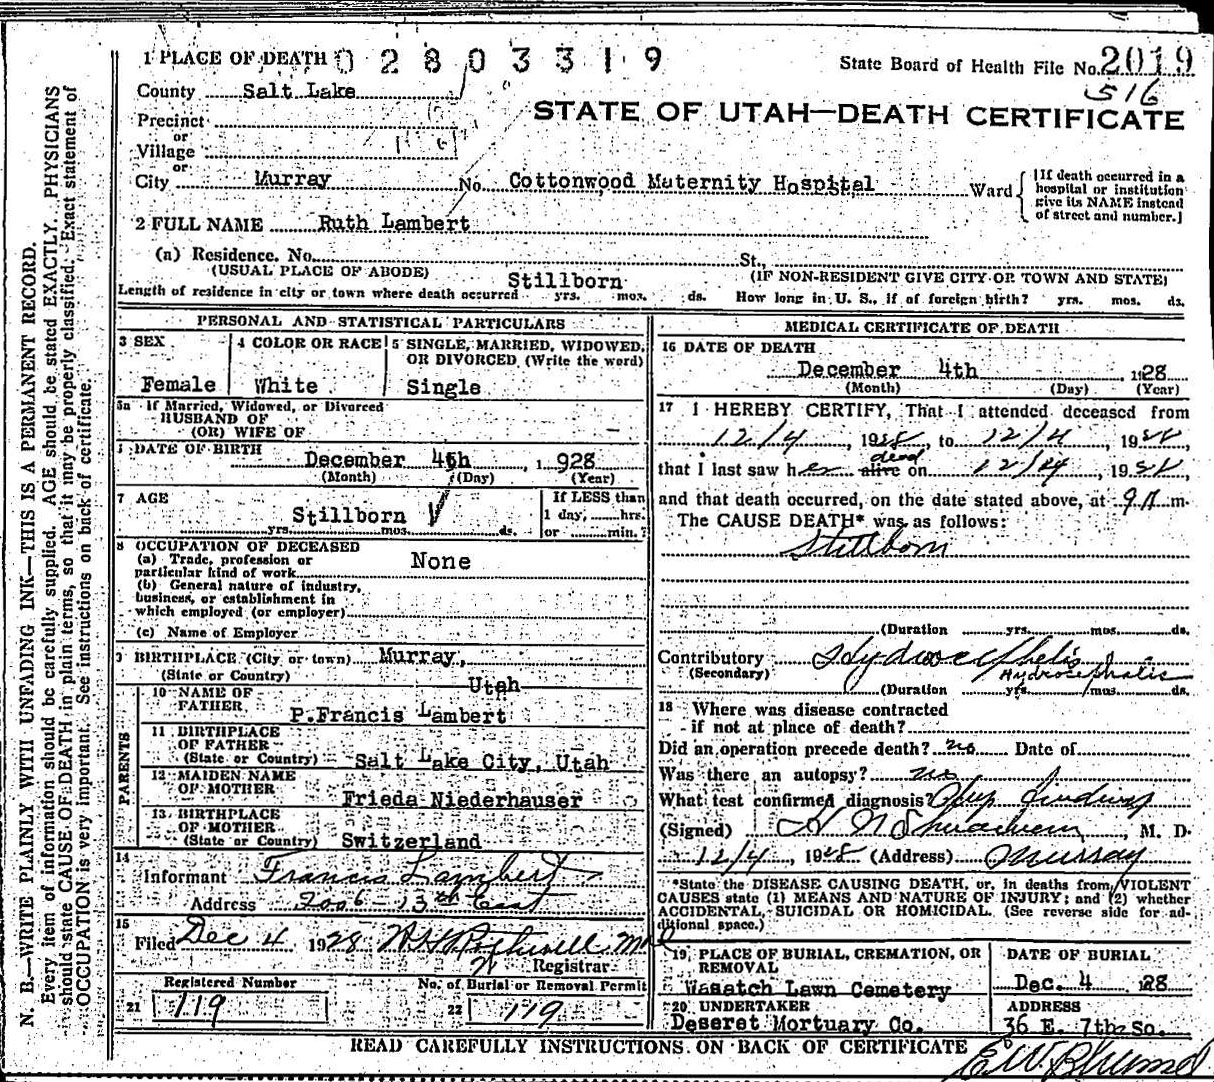 1 PLACE OF DEATH 02803319
State Board of Health File No. 2019
516
County Salt Lake
STATE OF UTAH—DEATH CERTIFICATE
Precinct
or
Village
or
City Murray No. Cottonwood Maternity Hospital Ward
[If death occurred in a
hospital or institution
give its NAME instead
of street and number.]
2 FULL NAME Ruth Lambert
(a) Residence. No. St.,
(USUAL PLACE OF ABODE) (IF NON-RESIDENT GIVE CITY OR TOWN AND STATE)
Stillborn
Length of residence in city or town where death occurred yrs. mos. ds. How long in U. S., if of foreign birth? yrs. mos. ds.
PERSONAL AND STATISTICAL PARTICULARS
3 SEX 4 COLOR OR RACE 5 SINGLE, MARRIED, WIDOWED,
OR DIVORCED (Write the word)
Female White Single
5a If Married, Widowed, or Divorced
HUSBAND OF
(OR) WIFE OF
DATE OF BIRTH
December 4th, 1928
(Month) (Day) (Year)
7 AGE
Stillborn
yrs. mos. ds.
If LESS than
1 day, hrs.
or min.?
8 OCCUPATION OF DECEASED
(a) Trade, profession or
particular kind of work
None
(b) General nature of industry,
business, or establishment in
which employed (or employer)
(c) Name of Employer
9 BIRTHPLACE (City or town) Murray,
(State or Country) Utah
PARENTS
10 NAME OF
FATHER
P. Francis Lambert
11 BIRTHPLACE
OF FATHER
(State or Country) Salt Lake City, Utah
12 MAIDEN NAME
OF MOTHER
Frieda Niederhauser
13 BIRTHPLACE
OF MOTHER
(State or Country) Switzerland
14
Informant Francis Lambert
Address 2006 - 13th East
15
Filed Dec 4 1928
Registrar
Registered Number
21 119
No. of Burial or Removal Permit
22 119
MEDICAL CERTIFICATE OF DEATH
16 DATE OF DEATH
December 4th 1928
(Month) (Day) (Year)
17 I HEREBY CERTIFY, That I attended deceased from
12/4, 1928, to 12/4, 1928
dead
that I last saw her alive on 12/4, 1928
and that death occurred, on the date stated above, at 9 A m.
The CAUSE DEATH* was as follows:
Stillborn
(Duration yrs. mos. ds.
Contributory Hydrocephelis
(Secondary) Hydrocephalis
(Duration yrs. mos. ds.
18 Where was disease contracted
if not at place of death?
Did an operation precede death? no Date of
Was there an autopsy? no
What test confirmed diagnosis?
(Signed) M. D.
12/4, 1928 (Address) Murray
*State the DISEASE CAUSING DEATH, or, in deaths from VIOLENT
CAUSES state (1) MEANS AND NATURE OF INJURY; and (2) whether
ACCIDENTAL, SUICIDAL OR HOMICIDAL. (See reverse side for ad-
ditional space.)
19 PLACE OF BURIAL, CREMATION, OR
REMOVAL
Wasatch Lawn Cemetery
DATE OF BURIAL
Dec. 4 1928
20 UNDERTAKER
Deseret Mortuary Co.
ADDRESS
36 E. 7th So.
READ CAREFULLY INSTRUCTIONS ON BACK OF CERTIFICATE
N. B.—WRITE PLAINLY WITH UNFADING INK—THIS IS A PERMANENT RECORD.
Every item of information should be carefully supplied. AGE should be stated EXACTLY. PHYSICIANS
should state CAUSE OF DEATH in plain terms, so that it may be properly classified. Exact statement of
OCCUPATION is very important. See instructions on back of certificate.